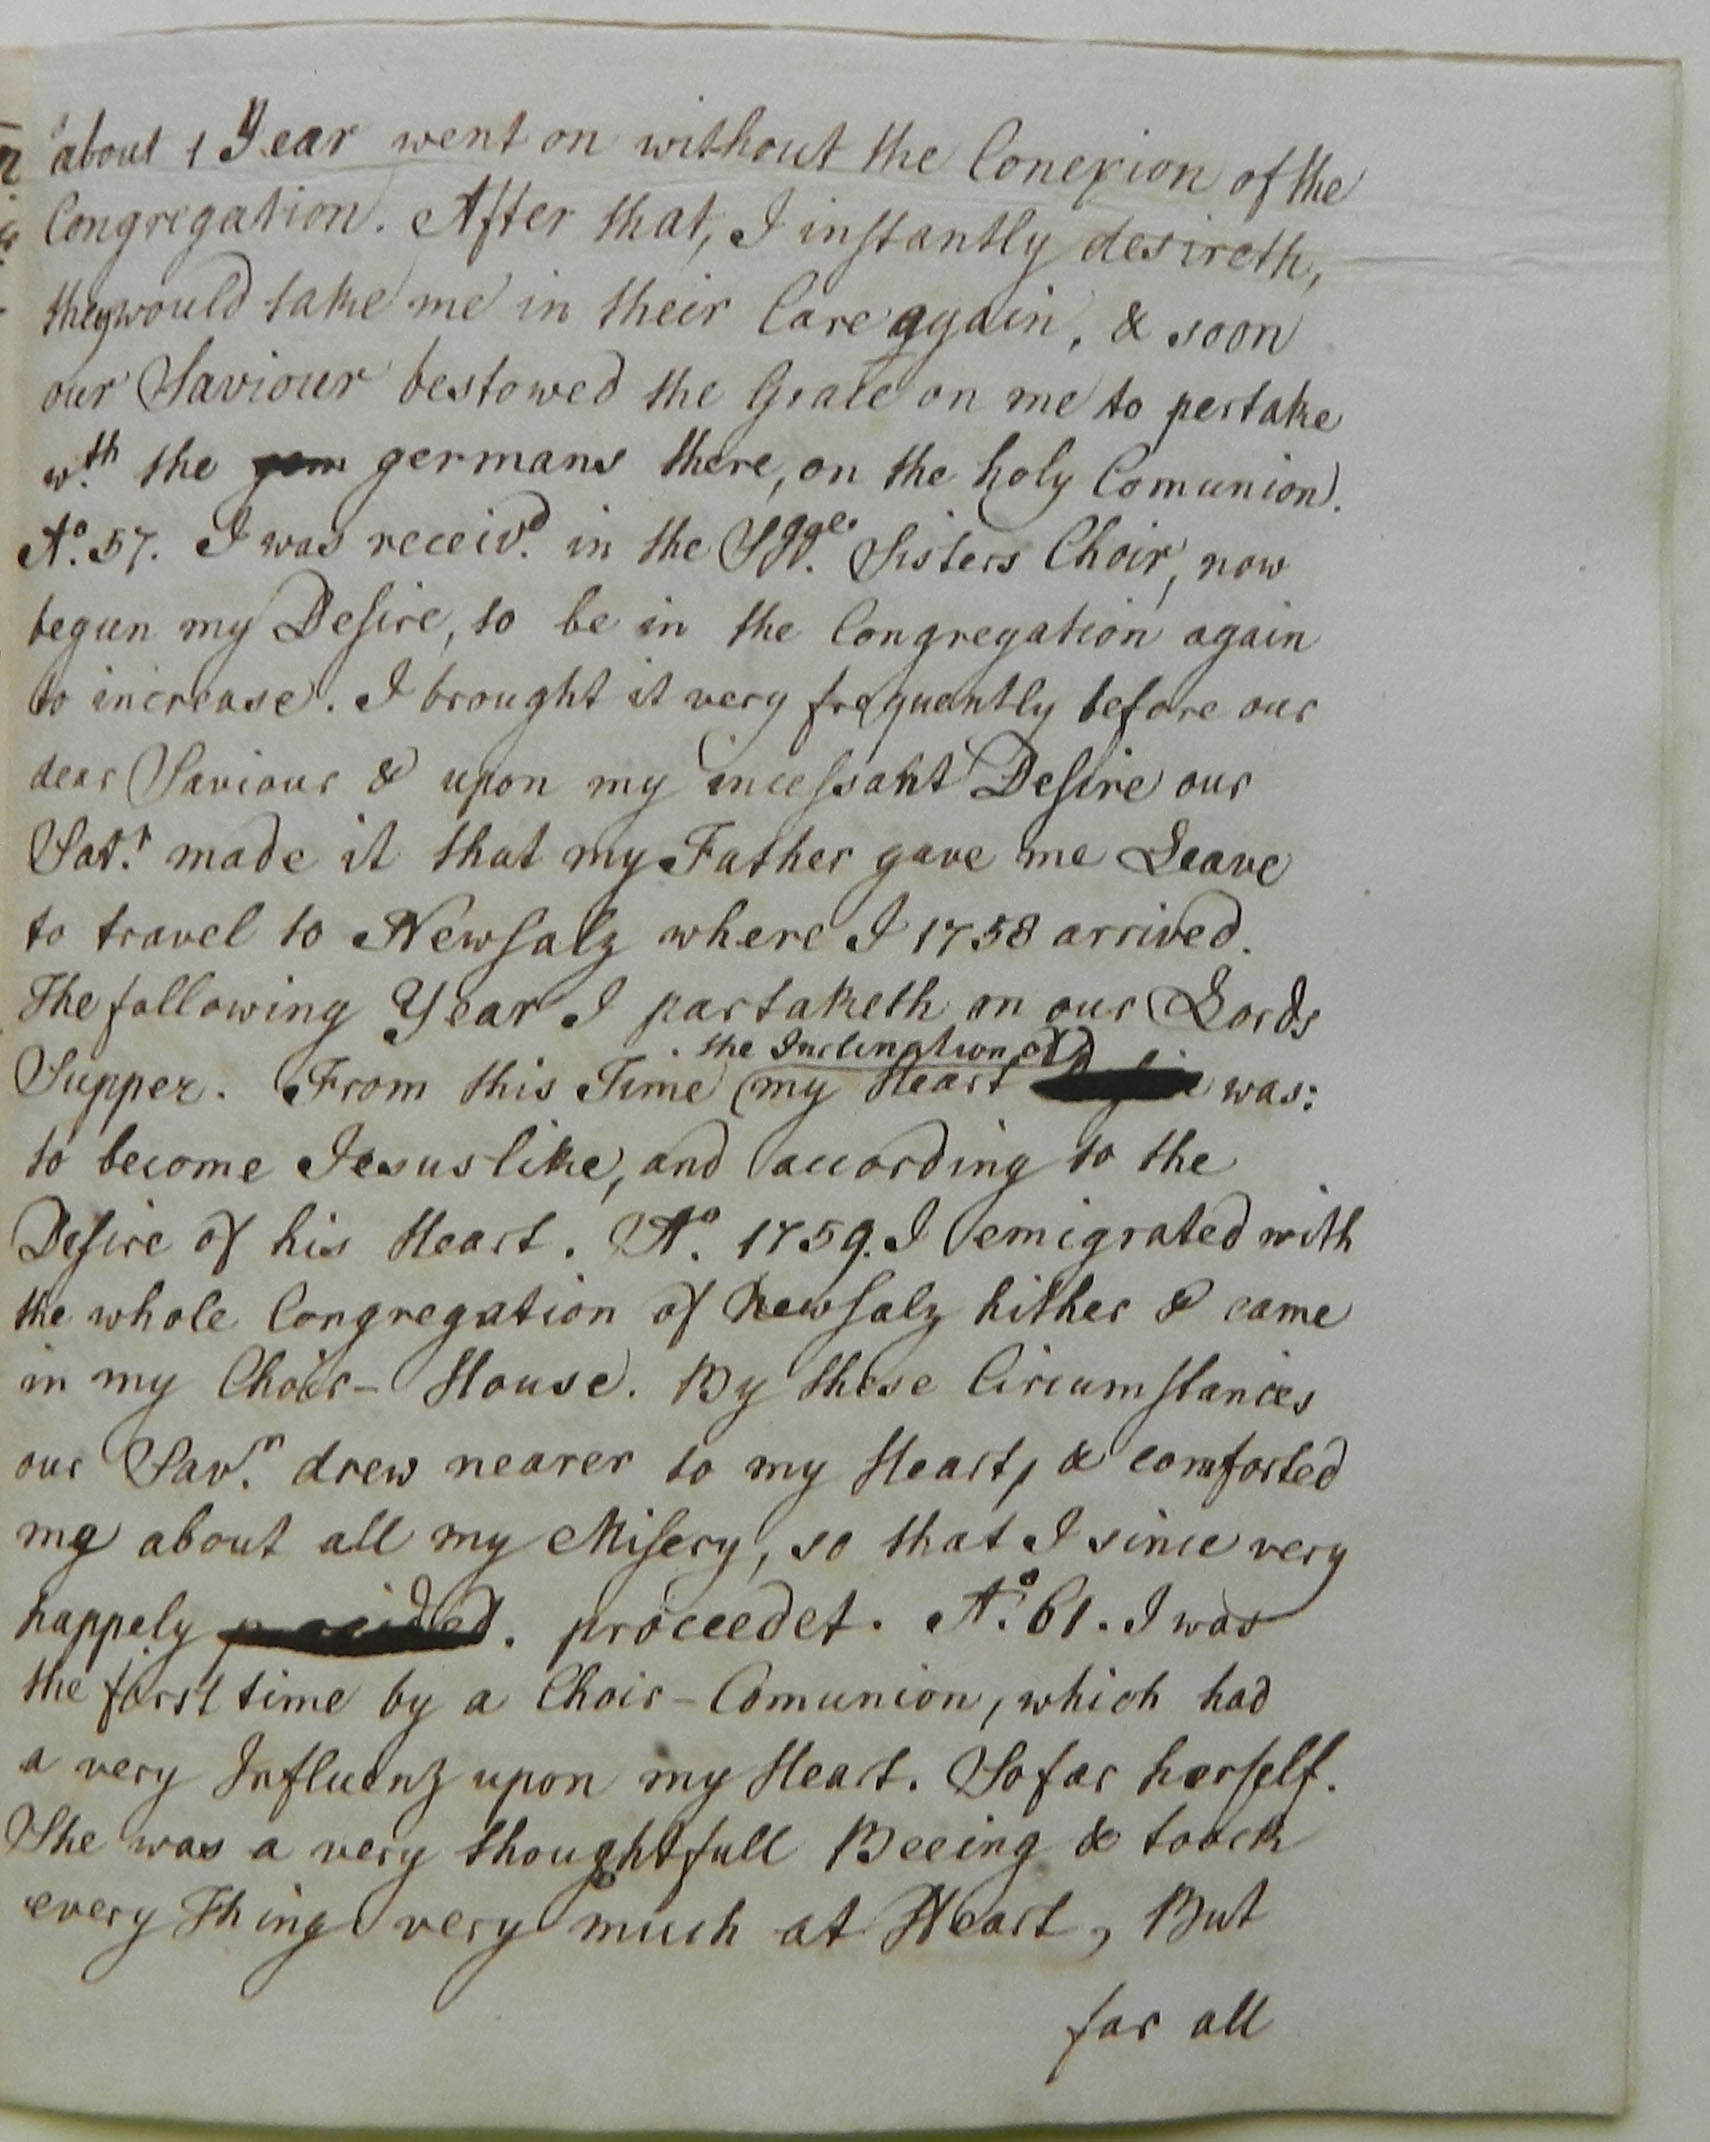 about 1 Year went on without the Conexion of the
Congregation. After that, I instantly desireth,
they would take me in their Care again, & soon
our Saviour bestowed the Grace on me to pertake
wth. the gem germans there, on the holy Comunion.
Ao. 57. I was receivd. in the Sgge. Sisters Choir, now
begun my Desire, to be in the Congregation again
to increase. I brought it very frequently before our
dear Saviour & upon my incessant Desire our
Savr. made it that my Father gave me Leave
to travel to Newsalz where I 1758 arrived.
The following Year I partaketh on our Lords
the Inclination of
Supper. From this Time my Heart was:
to become Jesuslike, and according to the
Desire of his Heart. Ao. 1759. I emigrated with
the whole Congregation of Newsalz hither & came
in my Choir-House. By these Circumstances
our Savr. drew nearer to my Heart, & comforted
me about all my Misery, so that I since very
happely proceedet. Ao. 61. I was
the first time by a Choir-Comunion, which had
a very Influenz upon my Heart. So far herself.
She was a very thoughtfull Beeing & toock
every Thing very much at Heart, But
for all